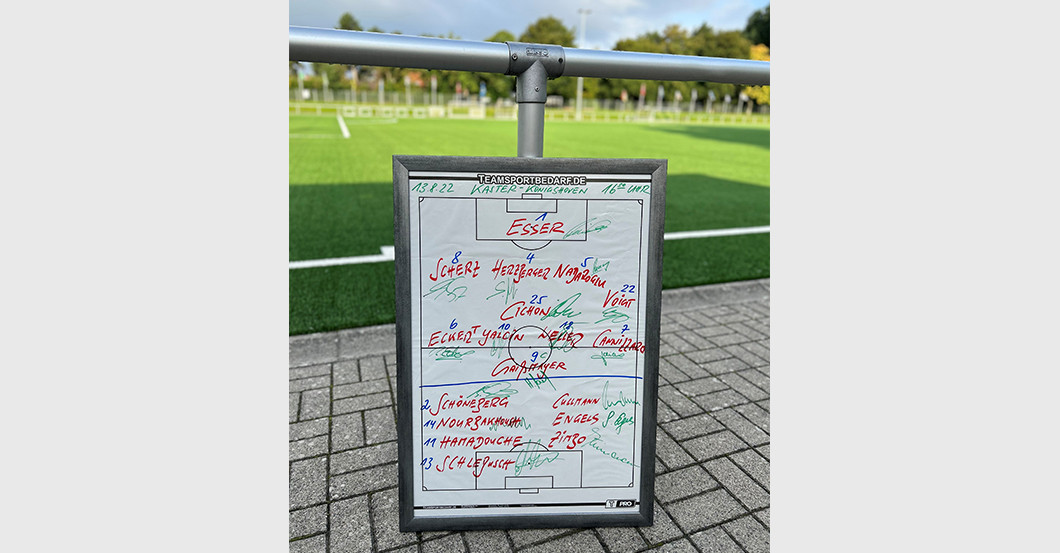 TEAMSPORTBEDARF.DE
13.8.22 KASTER-KÖNIGSHOVEN 16⁰⁰ UHR
1
ESSER
8 4 5
SCHERZ HERZBERGER
22
VOIGT
25
CICHON
6 10 18 7
ECKERT YALCIN CANNIZZARO
9
2 SCHÖNEBERG CULLMANN
14 NOURBAKHCHI ENGELS
11 HAMADOUCHE ZIMBO
13 SCHLEBUSCH
PRO